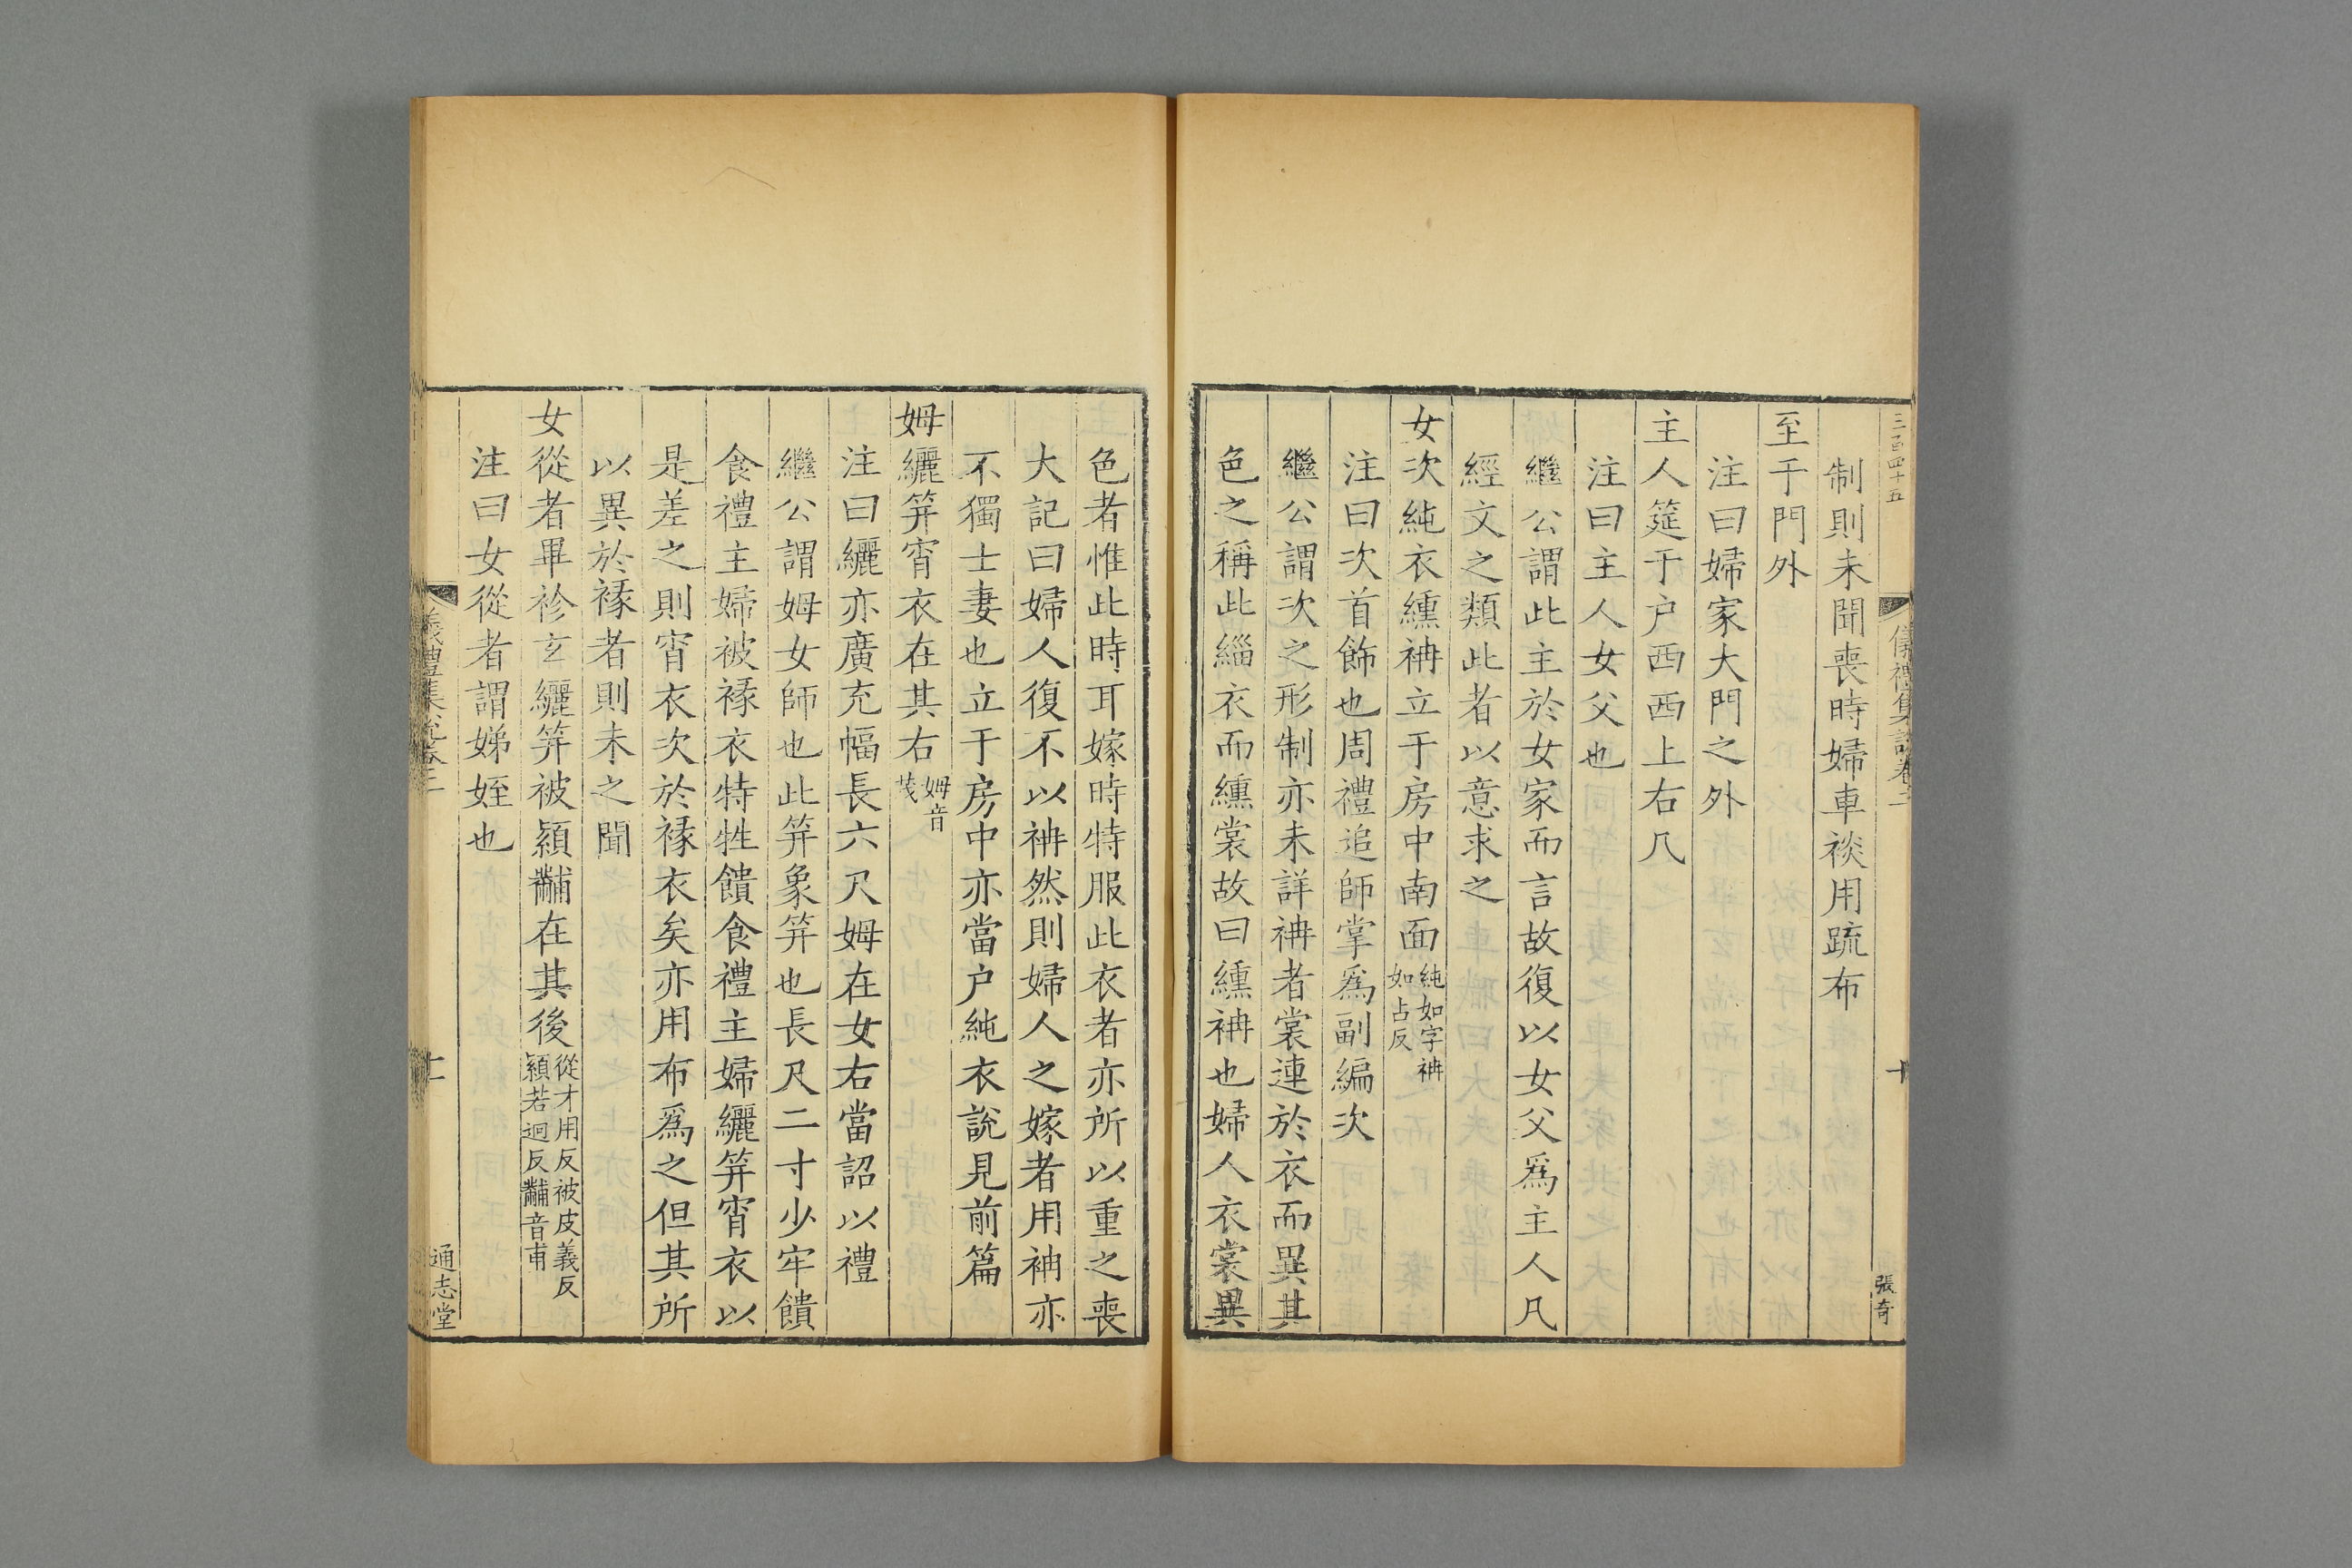 三百四十五
儀禮集說卷二
十
張奇
制則未聞喪時婦車裧用疏布
至于門外
注曰婦家大門之外
主人筵于户西西上右几
注曰主人女父也
繼公謂此主於女家而言故復以女父爲主人凡
經文之類此者以意求之
女次純衣纁袡立于房中南面純如字袡如占反
注曰次首飾也周禮追師掌爲副編次
繼公謂次之形制亦未詳袡者裳連於衣而異其
色之稱此緇衣而纁裳故曰纁袡也婦人衣裳異
色者惟此時耳嫁時特服此衣者亦所以重之喪
大記曰婦人復不以袡然則婦人之嫁者用袡亦
不獨士妻也立于房中亦當户純衣說見前篇
姆纚笄宵衣在其右姆音茂
注曰纚亦廣充幅長六尺姆在女右當詔以禮
繼公謂姆女師也此笄象笄也長尺二寸少牢饋
食禮主婦被褖衣特牲饋食禮主婦纚笄宵衣以
是差之則宵衣次於褖衣矣亦用布爲之但其所
以異於褖者則未之聞
女從者畢袗玄纚笄被顈黼在其後從才用反被皮義反顈若迥反黼音甫
注曰女從者謂娣姪也
儀禮集說卷二
十一
通志堂